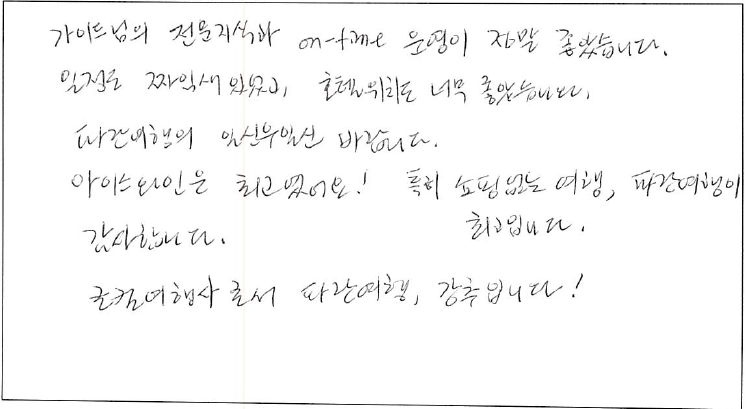 가이드님의 전문지식과 on-time 운영이 정말 좋았습니다.
일정도 짜임새 있었고, 호텔위치도 너무 좋았습니다.
파란여행의 일신우일신 바랍니다.
아이스와인은 최고였어요! 특히 쇼핑없는 여행, 파란여행이
감사합니다. 최고입니다.
로컬여행사로서 파란여행, 강추입니다!